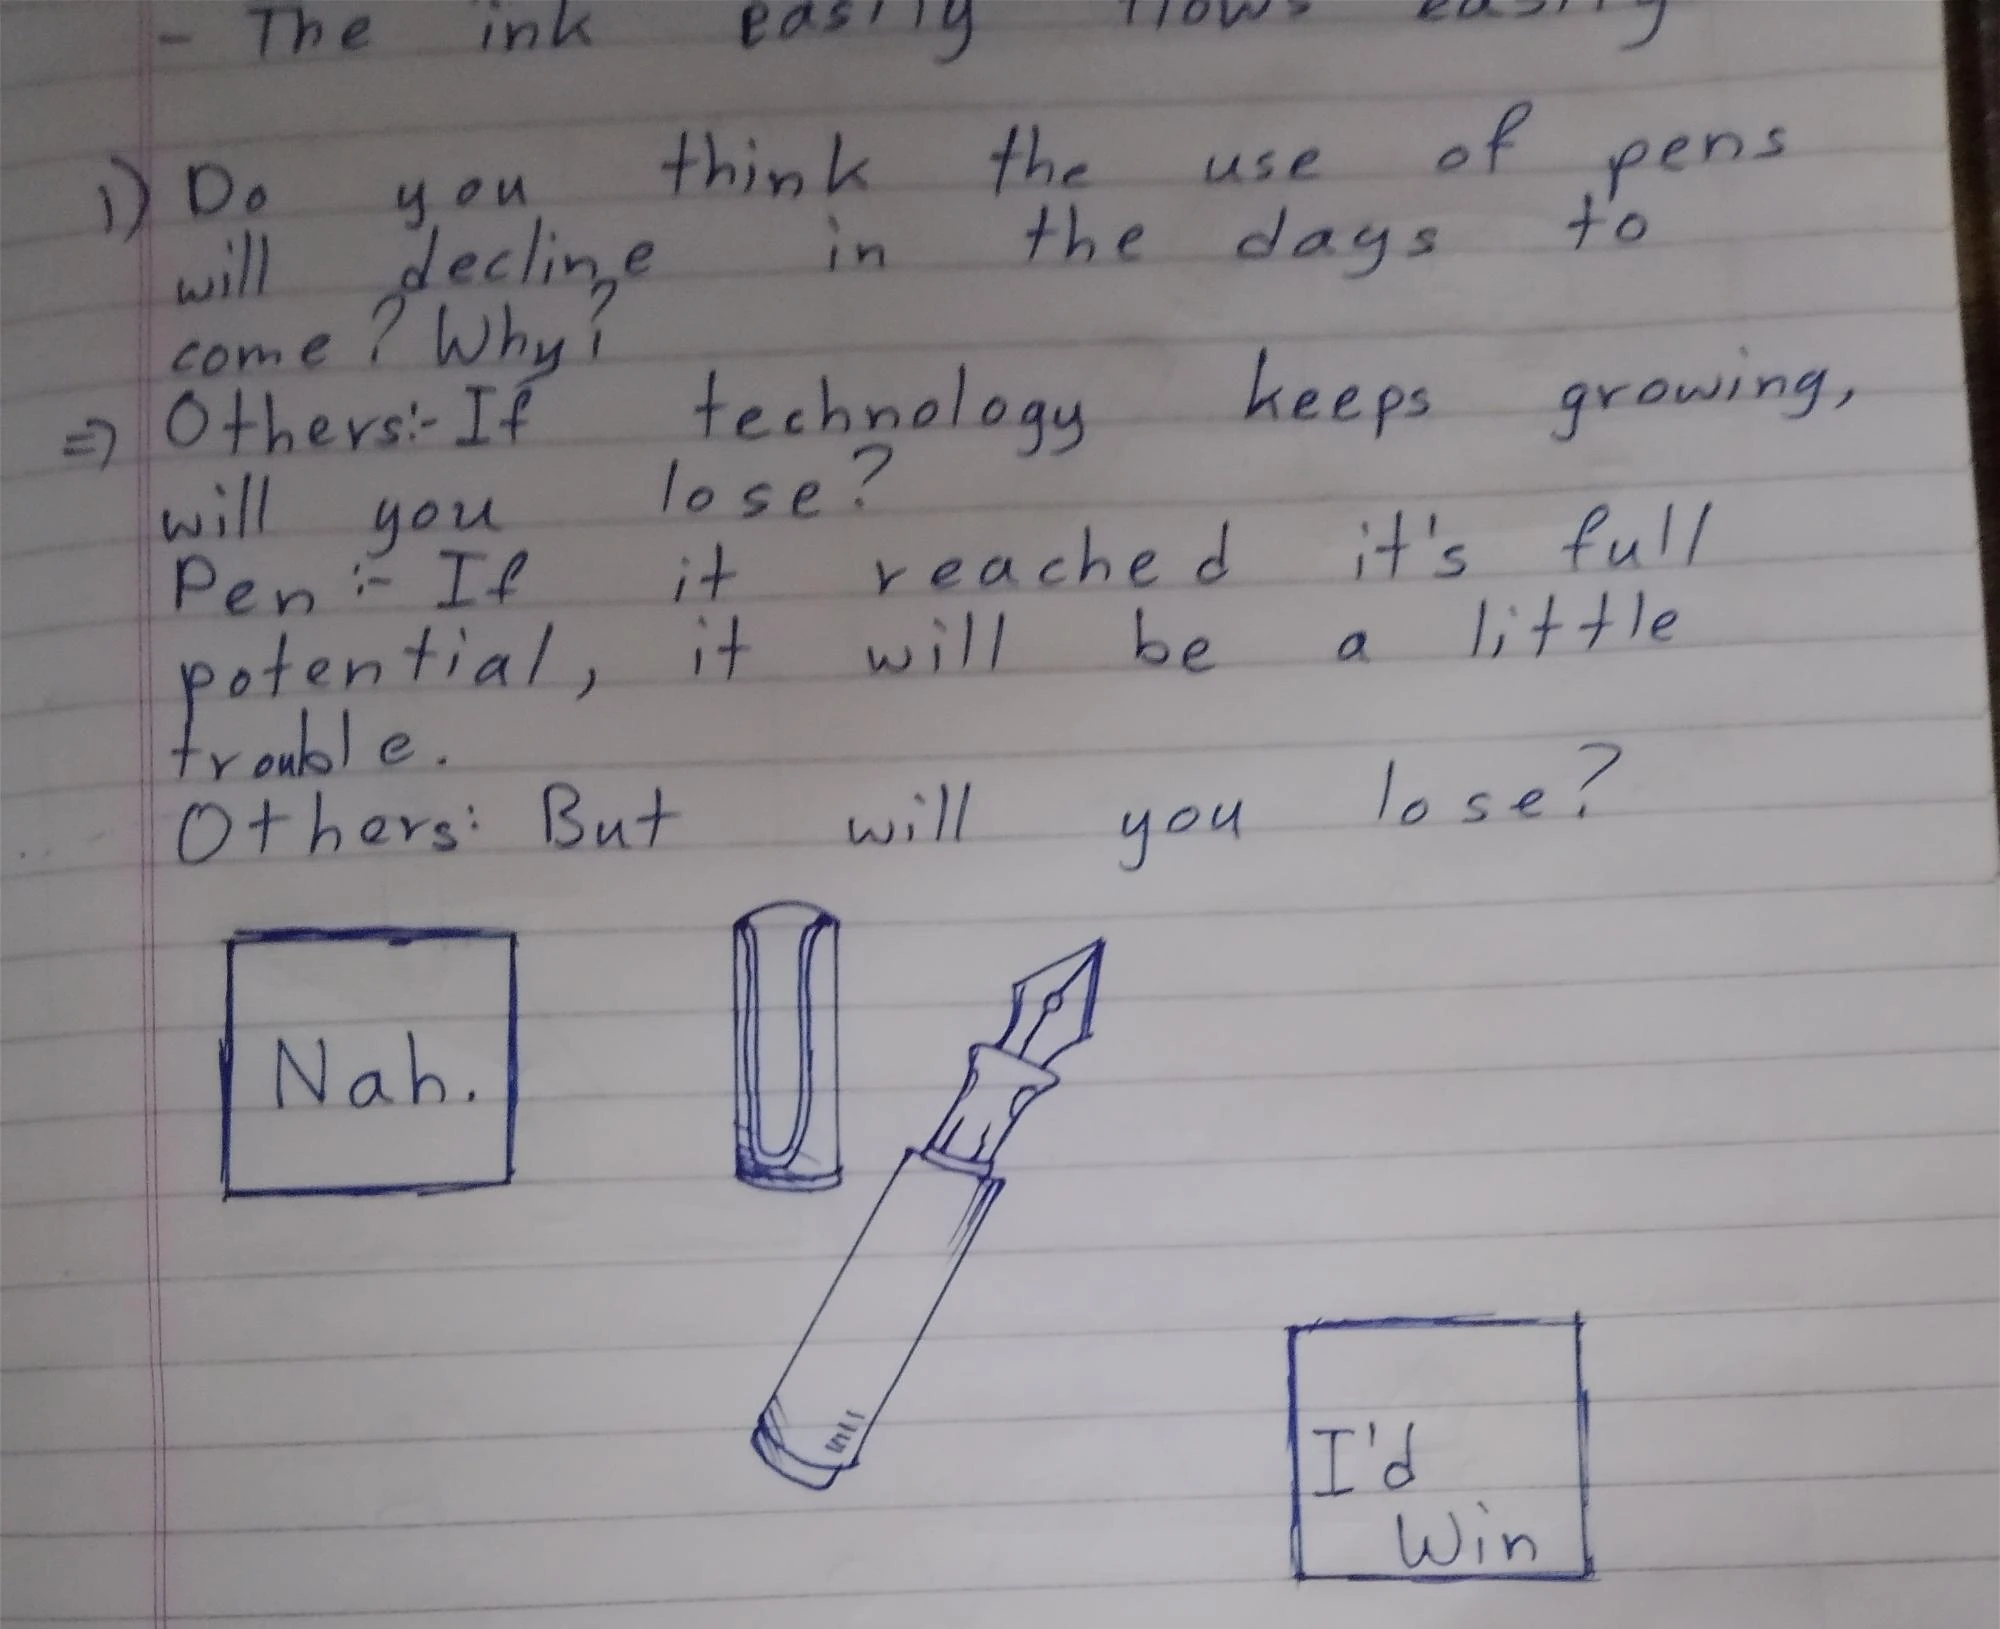 - The ink easily flows easily
1) Do you think the use of pens
will decline in the days to
come? Why?
=> Others:- If technology keeps growing,
will you lose?
Pen :- If it reached it's full
potential, it will be a little
trouble.
Others: But will you lose?
Nah.
I'd
Win